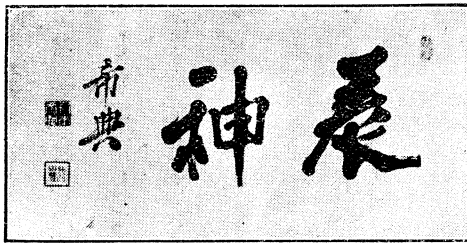 養神
希典